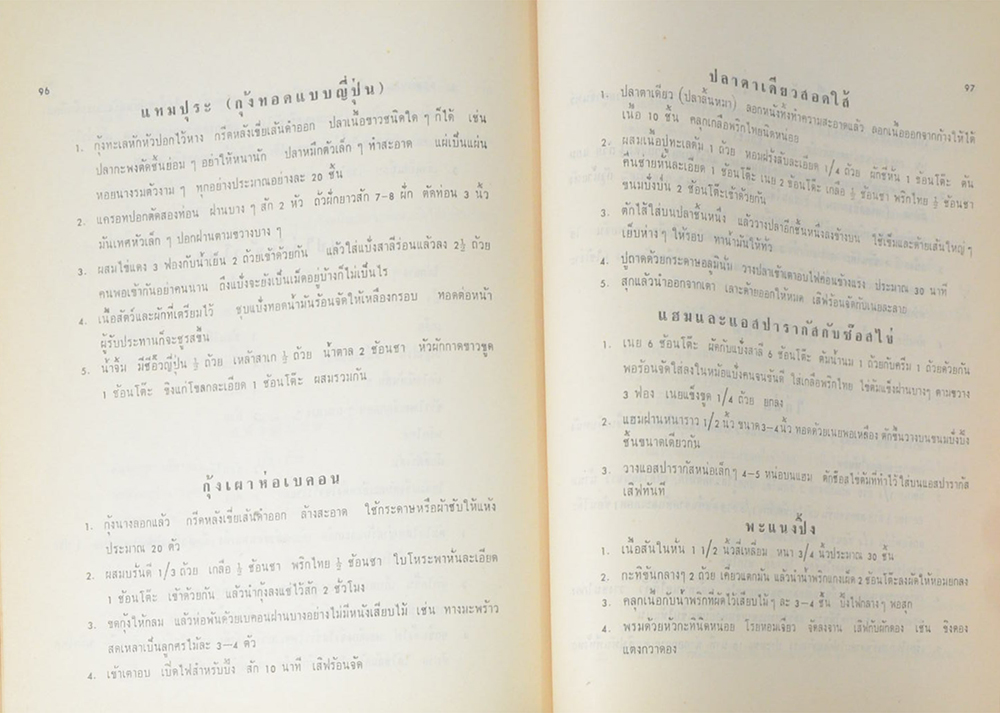 96
แทมปุระ (กุ้งทอดแบบญี่ปุ่น)
1. กุ้งทะเลหักหัวปอกไว้หาง กรีดหลังเขี่ยเส้นดำออก ปลาเนื้อขาวชนิดใด ๆ ก็ได้ เช่น
ปลากะพงตัดชิ้นย่อม ๆ อย่าให้หนานัก ปลาหมึกตัวเล็ก ๆ ทำสะอาด แผ่เป็นแผ่น
หอยนางรมตัวงาม ๆ ทุกอย่างประมาณอย่างละ 20 ชิ้น
2. แครอทปอกตัดสองท่อน ฝานบาง ๆ สัก 2 หัว ถั่วฝักยาวสัก 7-8 ฝัก ตัดท่อน 3 นิ้ว
มันเทศหัวเล็ก ๆ ปอกฝานตามขวางบาง ๆ
3. ผสมไข่แดง 3 ฟองกับน้ำเย็น 2 ถ้วยเข้าด้วยกัน แล้วใส่แป้งสาลีร่อนแล้วลง 2½ ถ้วย
คนพอเข้ากันอย่าคนนาน ถึงแป้งจะยังเป็นเม็ดอยู่บ้างก็ไม่เป็นไร
4. เนื้อสัตว์และผักที่เตรียมไว้ ชุบแป้งทอดน้ำมันร้อนจัดให้เหลืองกรอบ ทอดต่อหน้า
ผู้รับประทานก็จะชูรสขึ้น
5. น้ำจิ้ม มีซีอิ๊วญี่ปุ่น ½ ถ้วย เหล้าสาเก ½ ถ้วย น้ำตาล 2 ช้อนชา หัวผักกาดขาวขูด
1 ช้อนโต๊ะ ขิงแก่โขลกละเอียด 1 ช้อนโต๊ะ ผสมรวมกัน
กุ้งเผาห่อเบคอน
1. กุ้งนางลอกแล้ว กรีดหลังเขี่ยเส้นดำออก ล้างสะอาด ใช้กระดาษหรือผ้าซับให้แห้ง
ประมาณ 20 ตัว
2. ผสมบรั่นดี 1/3 ถ้วย เกลือ ½ ช้อนชา พริกไทย ½ ช้อนชา ใบโหระพาหั่นละเอียด
1 ช้อนโต๊ะ เข้าด้วยกัน แล้วนำกุ้งลงแช่ไว้สัก 2 ชั่วโมง
3. ขดกุ้งให้กลม แล้วห่อพันด้วยเบคอนฝานบางอย่างไม่มีหนังเสียบไม้ เช่น ทางมะพร้าว
สดเหลาเป็นลูกศรไม้ละ 3—4 ตัว
4. เข้าเตาอบ เปิดไฟสำหรับปิ้ง สัก 10 นาที เสิฟร้อนจัด
97
ปลาตาเดียวสอดใส้
1. ปลาตาเดียว (ปลาลิ้นหมา) ลอกหนังทิ้งทำความสะอาดแล้ว ลอกเนื้อออกจากก้างให้ได้
เนื้อ 10 ชิ้น คลุกเกลือพริกไทยนิดหน่อย
2. ผสมเนื้อปูทะเลต้ม 1 ถ้วย หอมฝรั่งสับละเอียด 1/4 ถ้วย ผักชีหั่น 1 ช้อนโต๊ะ ต้น
คึ่นช่ายหั่นละเอียด 1 ช้อนโต๊ะ เนย 2 ช้อนโต๊ะ เกลือ ½ ช้อนชา พริกไทย ½ ช้อนชา
ขนมปังป่น 2 ช้อนโต๊ะเข้าด้วยกัน
3. ตักไส้ใส่บนปลาชิ้นหนึ่ง แล้ววางปลาอีกชิ้นหนึ่งลงข้างบน ใช้เข็มและด้ายเส้นใหญ่ ๆ
เย็บห่าง ๆ ให้รอบ ทาน้ำมันให้ทั่ว
4. ปูถาดด้วยกระดาษอลูมินั่ม วางปลาเข้าเตาอบไฟค่อนข้างแรง ประมาณ 30 นาที
5. สุกแล้วนำออกจากเตา เลาะด้ายออกให้หมด เสิฟร้อนจัดกับเนยละลาย
แฮมและแอสปารากัสกับซ๊อสไข่
1. เนย 6 ช้อนโต๊ะ ผัดกับแป้งสาลี 6 ช้อนโต๊ะ ต้มน้ำนม 1 ถ้วยกับครีม 1 ถ้วยด้วยกัน
พอร้อนจัดใส่ลงในหม้อแป้งคนจนข้นดี ใส่เกลือพริกไทย ไข่ต้มแข็งฝานบางๆ ตามขวาง
3 ฟอง เนยแข็งขูด 1/4 ถ้วย ยกลง
2. แฮมฝานหนาราว 1/2 นิ้ว ขนาด 3—4 นิ้ว ทอดด้วยเนยพอเหลือง ตักขึ้นวางบนขนมปังปิ้ง
ชิ้นขนาดเดียวกัน
3. วางแอสปารากัสหน่อเล็กๆ 4-5 หน่อบนแฮม ตักซ๊อสไข่ต้มที่ทำไว้ใส่บนแอสปารากัส
เสิฟทันที
พะแนงปิ้ง
1. เนื้อสันในหั่น 1 1/2 นิ้วสี่เหลี่ยม หนา 3/4 นิ้วประมาณ 30 ชิ้น
2. กะทิข้นกลางๆ 2 ถ้วย เคี่ยวแตกมัน แล้วนำน้ำพริกแกงเผ็ด 2 ช้อนโต๊ะลงผัดให้หอมยกลง
3. คลุกเนื้อกับน้ำพริกที่ผัดไว้เสียบไม้ๆ ละ 3—4 ชิ้น ปิ้งไฟกลางๆ พอสุก
4. พรมด้วยหัวกะทินิดหน่อย โรยหอมเจียว จัดลงจาน เสิฟกับผักดอง เช่น ขิงดอง
แตงกวาดอง